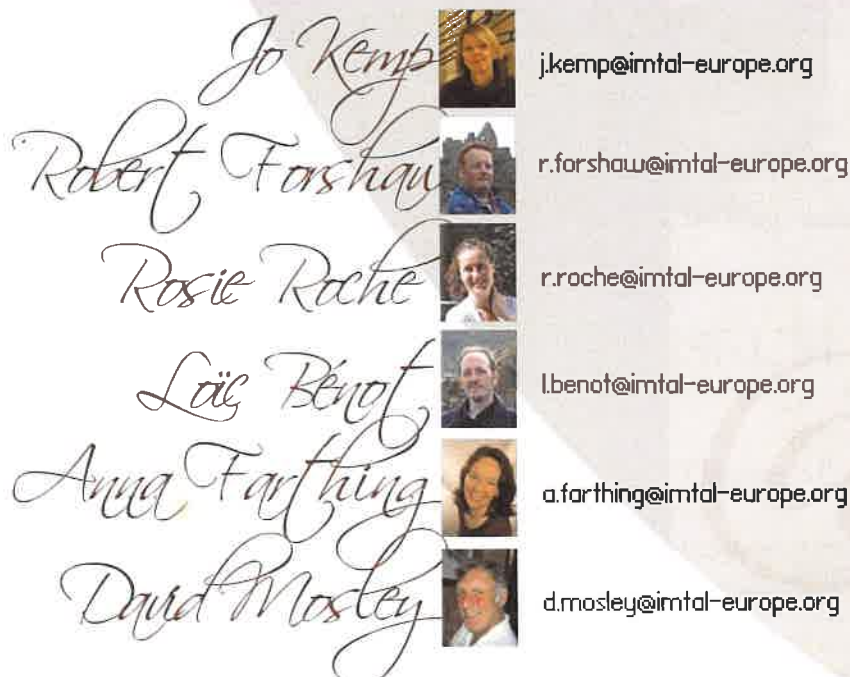 Jo Kemp j.kemp@imtal-europe.org
Robert Forshaw r.forshaw@imtal-europe.org
Rosie Roche r.roche@imtal-europe.org
Loïc Bénot l.benot@imtal-europe.org
Anna Farthing a.farthing@imtal-europe.org
David Mosley d.mosley@imtal-europe.org